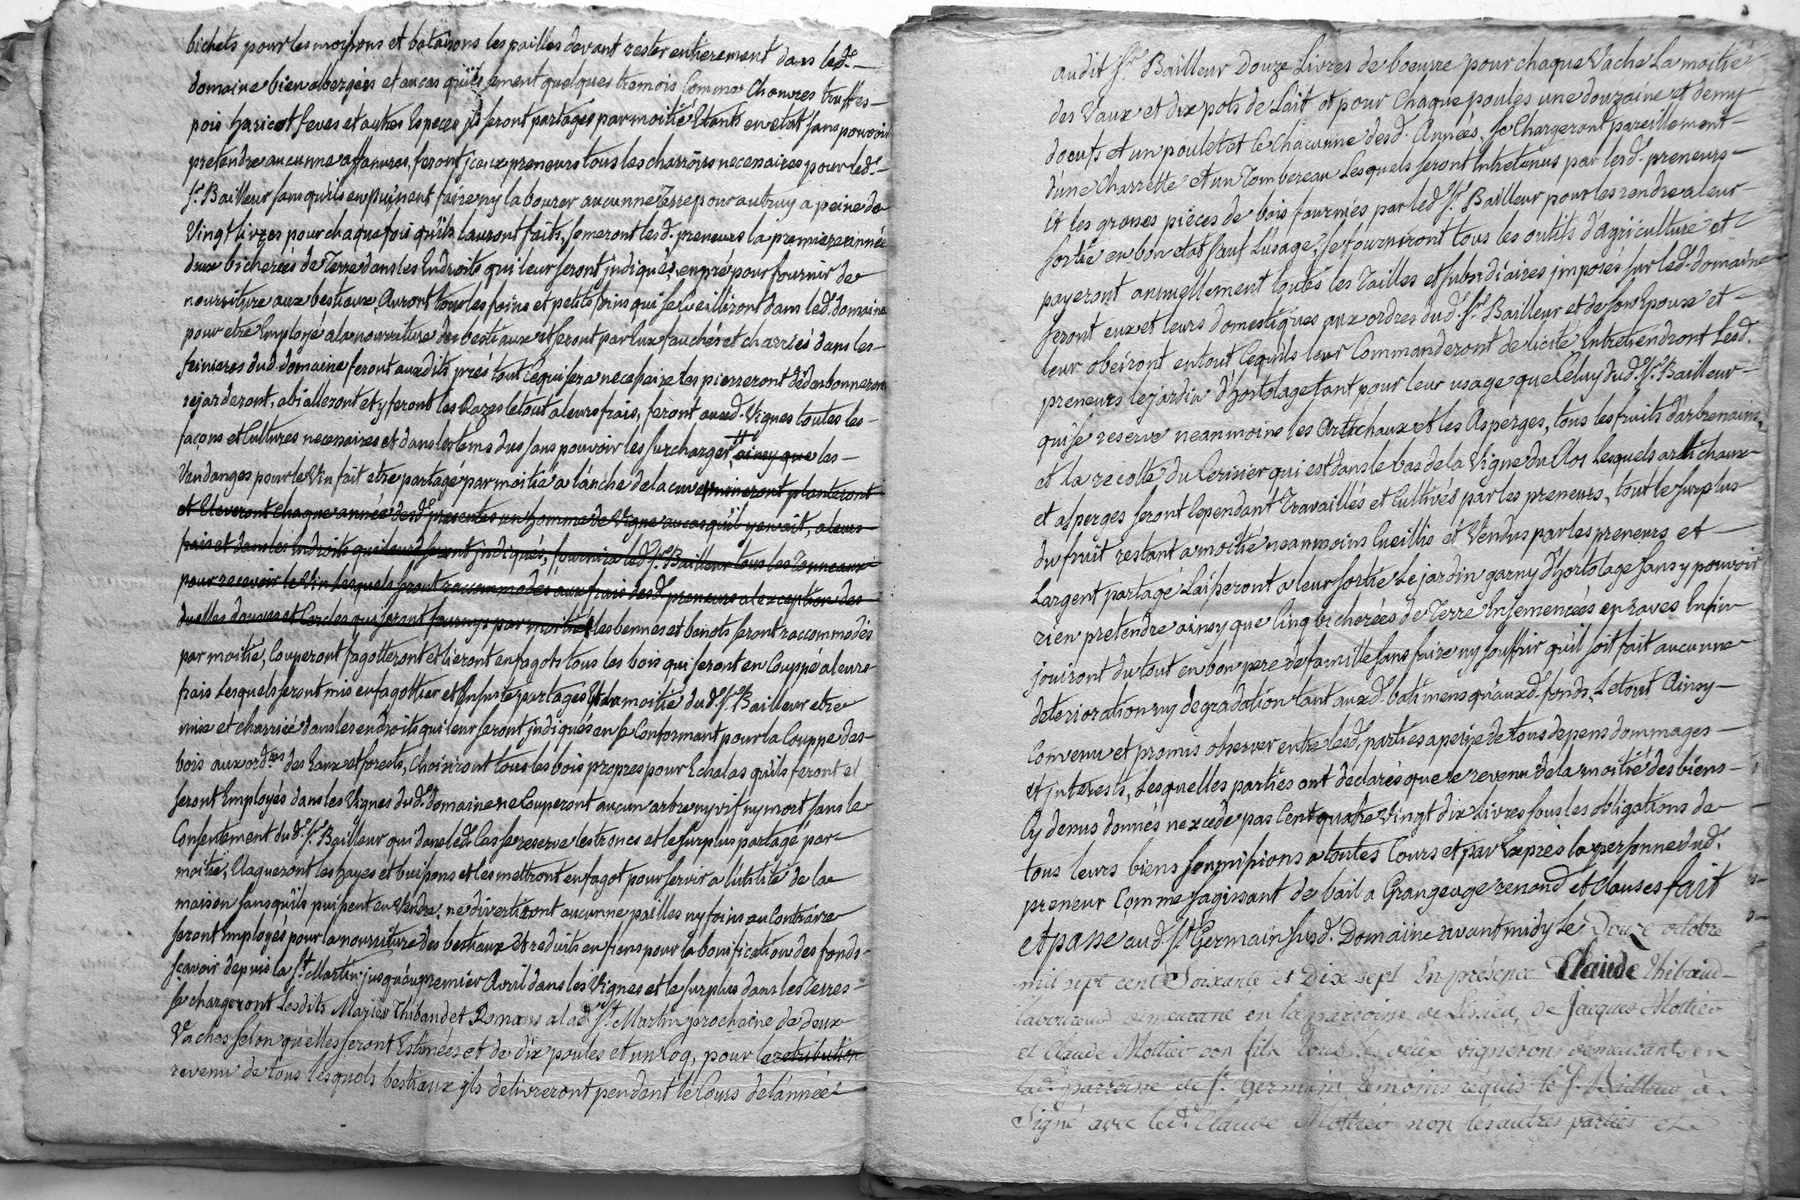 bichets pour les moissons et bataisons les pailles devant rester entierement dans led.
domaine bien albergées et au cas qu'ils sement quelques tremois Comme Chanvres truffes
pois haricot feves et autres Especes ils seront partagés par moitié Etants en etat sans pouvoir
pretendre aucunne affanure, feront iceux preneurs tous les charrois necessaires pour led.
Sr. Bailleur sans qu'ils en puissent faire ny labourer aucunne Terre pour autruy a peine de
Vingt Livres pour chaque fois qu'ils l'auront faits, semeront lesd. preneurs la premiere année
deux bicherées de Terre dans les Endroits qui leur seront indiqués en pré pour fournir de
nourriture aux bestiaux, Auront tous les foins et petits foins qui se Cueilliront dans led. domaine
pour etre Employé a la nourriture des bestiaux et seront par Eux fauchés et charriés dans les
feinieres dud. domaine feront auxdits prés tout ce qui sera necessaire les pierreront
rejarderont, abialleront et y feront les Razes le tout a leurs frais, feront auxd. Vignes toutes les
façons et Cultures necessaires et dans les tems dus sans pouvoir les surcharger, ainsy que les
Vendanges pour le Vin fait etre partagé par moitié a l'anche de la cuve provineront planteront
et Eleveront chaque année desd. presentes un homme de Vigne au cas qu'il y en ait, a leurs
frais et dans les Endroits qui leurs seront indiqués, fournira led. Sr. Bailleur tous les Tonneaux
pour recevoir le Vin Lesquels seront raccommodés aux frais desd. preneurs a l'exception des
duelles douves et Cercles qui seront fournys par moitié les bennes et benots seront raccommodés
par moitié, Couperont fagotteront et lieront en fagots tous les bois qui seront en Couppe a leurs
frais Lesquels seront mis en fagottier et Ensuite partagés Et la moitié du d. Sr. Bailleur etre
mise et charriée dans les endroits qui leur seront indiqués en se Conformant pour la Couppe des
bois aux ordces des Eaux et forests, Choisiront tous les bois propres pour Echalas qu'ils feront et
seront Employés dans les Vignes dud. domaine ne Couperont aucun arbre ny vif ny mort sans le
Consentement dud. Sr. Bailleur qui dans led. Cas se reserve les troncs et le surplus partagé par
moitié, Elagueront les hayes et buissons et les mettront en fagot pour servir a l'utilité de la
maison sans qu'ils puissent en Vendre, ne divertiront aucunne pailles ny foins au Contraire
seront Employés pour la nourriture des bestiaux Et reduits en fiens pour la bonification des fonds
sçavoir depuis la St. Martin jusqu'au premier Avril dans les Vignes et le surplus dans les Terres
se chargeront Lesdits Mariés Thibaud et Romans a lad. St. Martin prochaine de deux
Vaches selon qu'elles seront Estimées et de dix poules et un Coq, pour le retribution
revenu de tous lesquels bestiaux ils delivreront pendant le Cours de l'année
audit Sr. Bailleur Douze Livres de boeurre pour chaque Vache La moitié
des Vaux et dix pots de Lait et pour Chaque poules une douzaine et demy
d'oeufs et un poulet et ce chacunne desd. Années, se Chargeront pareillement
d'une Charrette et un Tombereau Lesquels seront Entretenus par lesd. preneurs
Et les grosses pièces de bois fournies par led. Sr. Bailleur pour les rendre a leur
sortie en bon etat sauf L'usage, se fourniront tous les outils d'agriculture et
payeront annuellement toutes les Tailles et subsidiaires imposés sur led. domaine
seront eux et leurs domestiques aux ordres dud. Sr. Bailleur et de son Epouse et
leur obeiront en tout Ce qu'ils leur Commanderont de licite Entretiendront Lesd.
preneurs le jardin d'hortolage tant pour leur usage que Celuy dud. Sr. Bailleur
qui se reserve neanmoins les Artichaux et les Asperges, tous les fruits d'arbre nains,
et la recolte du Cerisier qui est dans le bas de la Vigne du Clos Lesquels artichaux
et asperges seront Cependant Travaillés et Cultivés par les preneurs, tout le surplus
du fruit restant a moitié neanmoins Cueillis et Vendus par les preneurs et
L'argent partagé Laisseront a leur sortie Le jardin garny d'hortolage sans y pouvoir
rien pretendre ainsy que Cinq bicherées de Terre Ensemencées en raves Enfin
jouiront du tout en bon pere de famille sans faire ny souffrir qu'il soit fait aucunne
deterioration ny dégradation tant auxd. batimens qu'auxd. fonds, Le tout Ainsy
Convenu et promis observer entre lesd. parties a peine de tous depens dommages
et interests, Lesquelles parties ont declarés que le revenu de la moitié des biens
Cy dessus donnés n'excede pas Cent quatre Vingt dix Livres sous les obligations de
tous leurs biens soumissions a toutes Cours et par Exprès la personne dud.
preneur Comme s'agissant de bail a Grangeage renond. et Clauses fait
et passé aud. St. Germain susd. Domaine avant midy Le Douze octobre
mil sept cent Soixante et Dix sept En présence Claude Thibaud
laboureur demeurant en la paroisse de Lissieu, de Jacques Mottier
et Claude Mottier son fils tous les deux vigneron demeurants en
lad. parroisse de St. Germain temoins requis le Sr. Bailleur à
Signé avec led. Claude Mottier non les autres parties et le